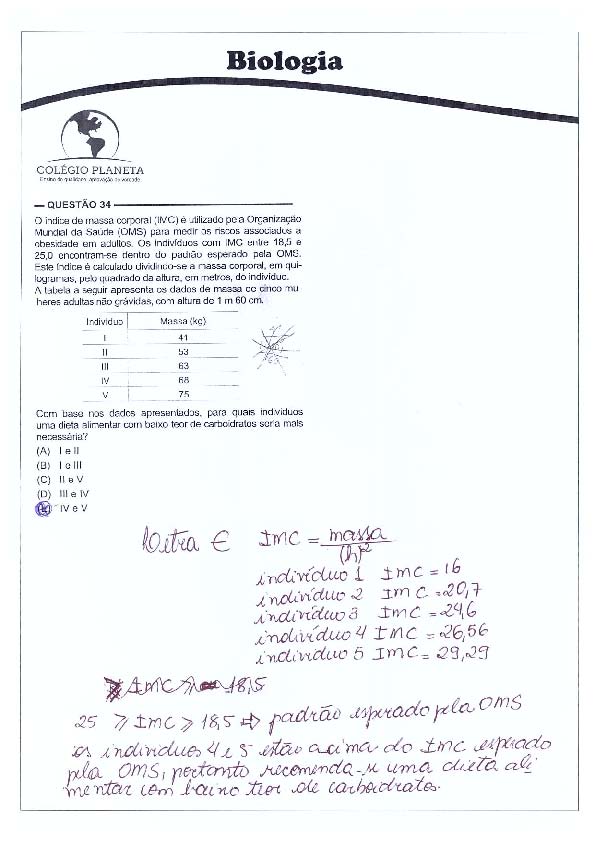 Biologia
COLÉGIO PLANETA
Ensino de qualidade, aprovação de verdade.
QUESTÃO 34
O índice de massa corporal (IMC) é utilizado pela Organização
Mundial da Saúde (OMS) para medir os riscos associados a
obesidade em adultos. Os indivíduos com IMC entre 18,5 e
25,0 encontram-se dentro do padrão esperado pela OMS.
Este índice é calculado dividindo-se a massa corporal, em qui-
logramas, pelo quadrado da altura, em metros, do indivíduo.
A tabela a seguir apresenta os dados de massa de cinco mu-
lheres adultas não grávidas, com altura de 1 m 60 cm.
Indivíduo Massa (kg)
I 41
II 53
III 63
IV 68
V 75
Com base nos dados apresentados, para quais indivíduos
uma dieta alimentar com baixo teor de carboidratos seria mais
necessária?
(A) I e II
(B) I e III
(C) II e V
(D) III e IV
IV e V
Letra E IMC = massa
(h)²
indivíduo 1 IMC = 16
indivíduo 2 IMC = 20,7
indivíduo 3 IMC = 24,6
indivíduo 4 IMC = 26,56
indivíduo 5 IMC = 29,29
IMC 18,5
25 ⩾ IMC ⩾ 18,5 ⇒ padrão esperado pela OMS
os individuos 4 e 5 estão acima do IMC esperado
pela OMS, portanto recomenda-se uma dieta ali
mentar com baixo teor de carboidratos.